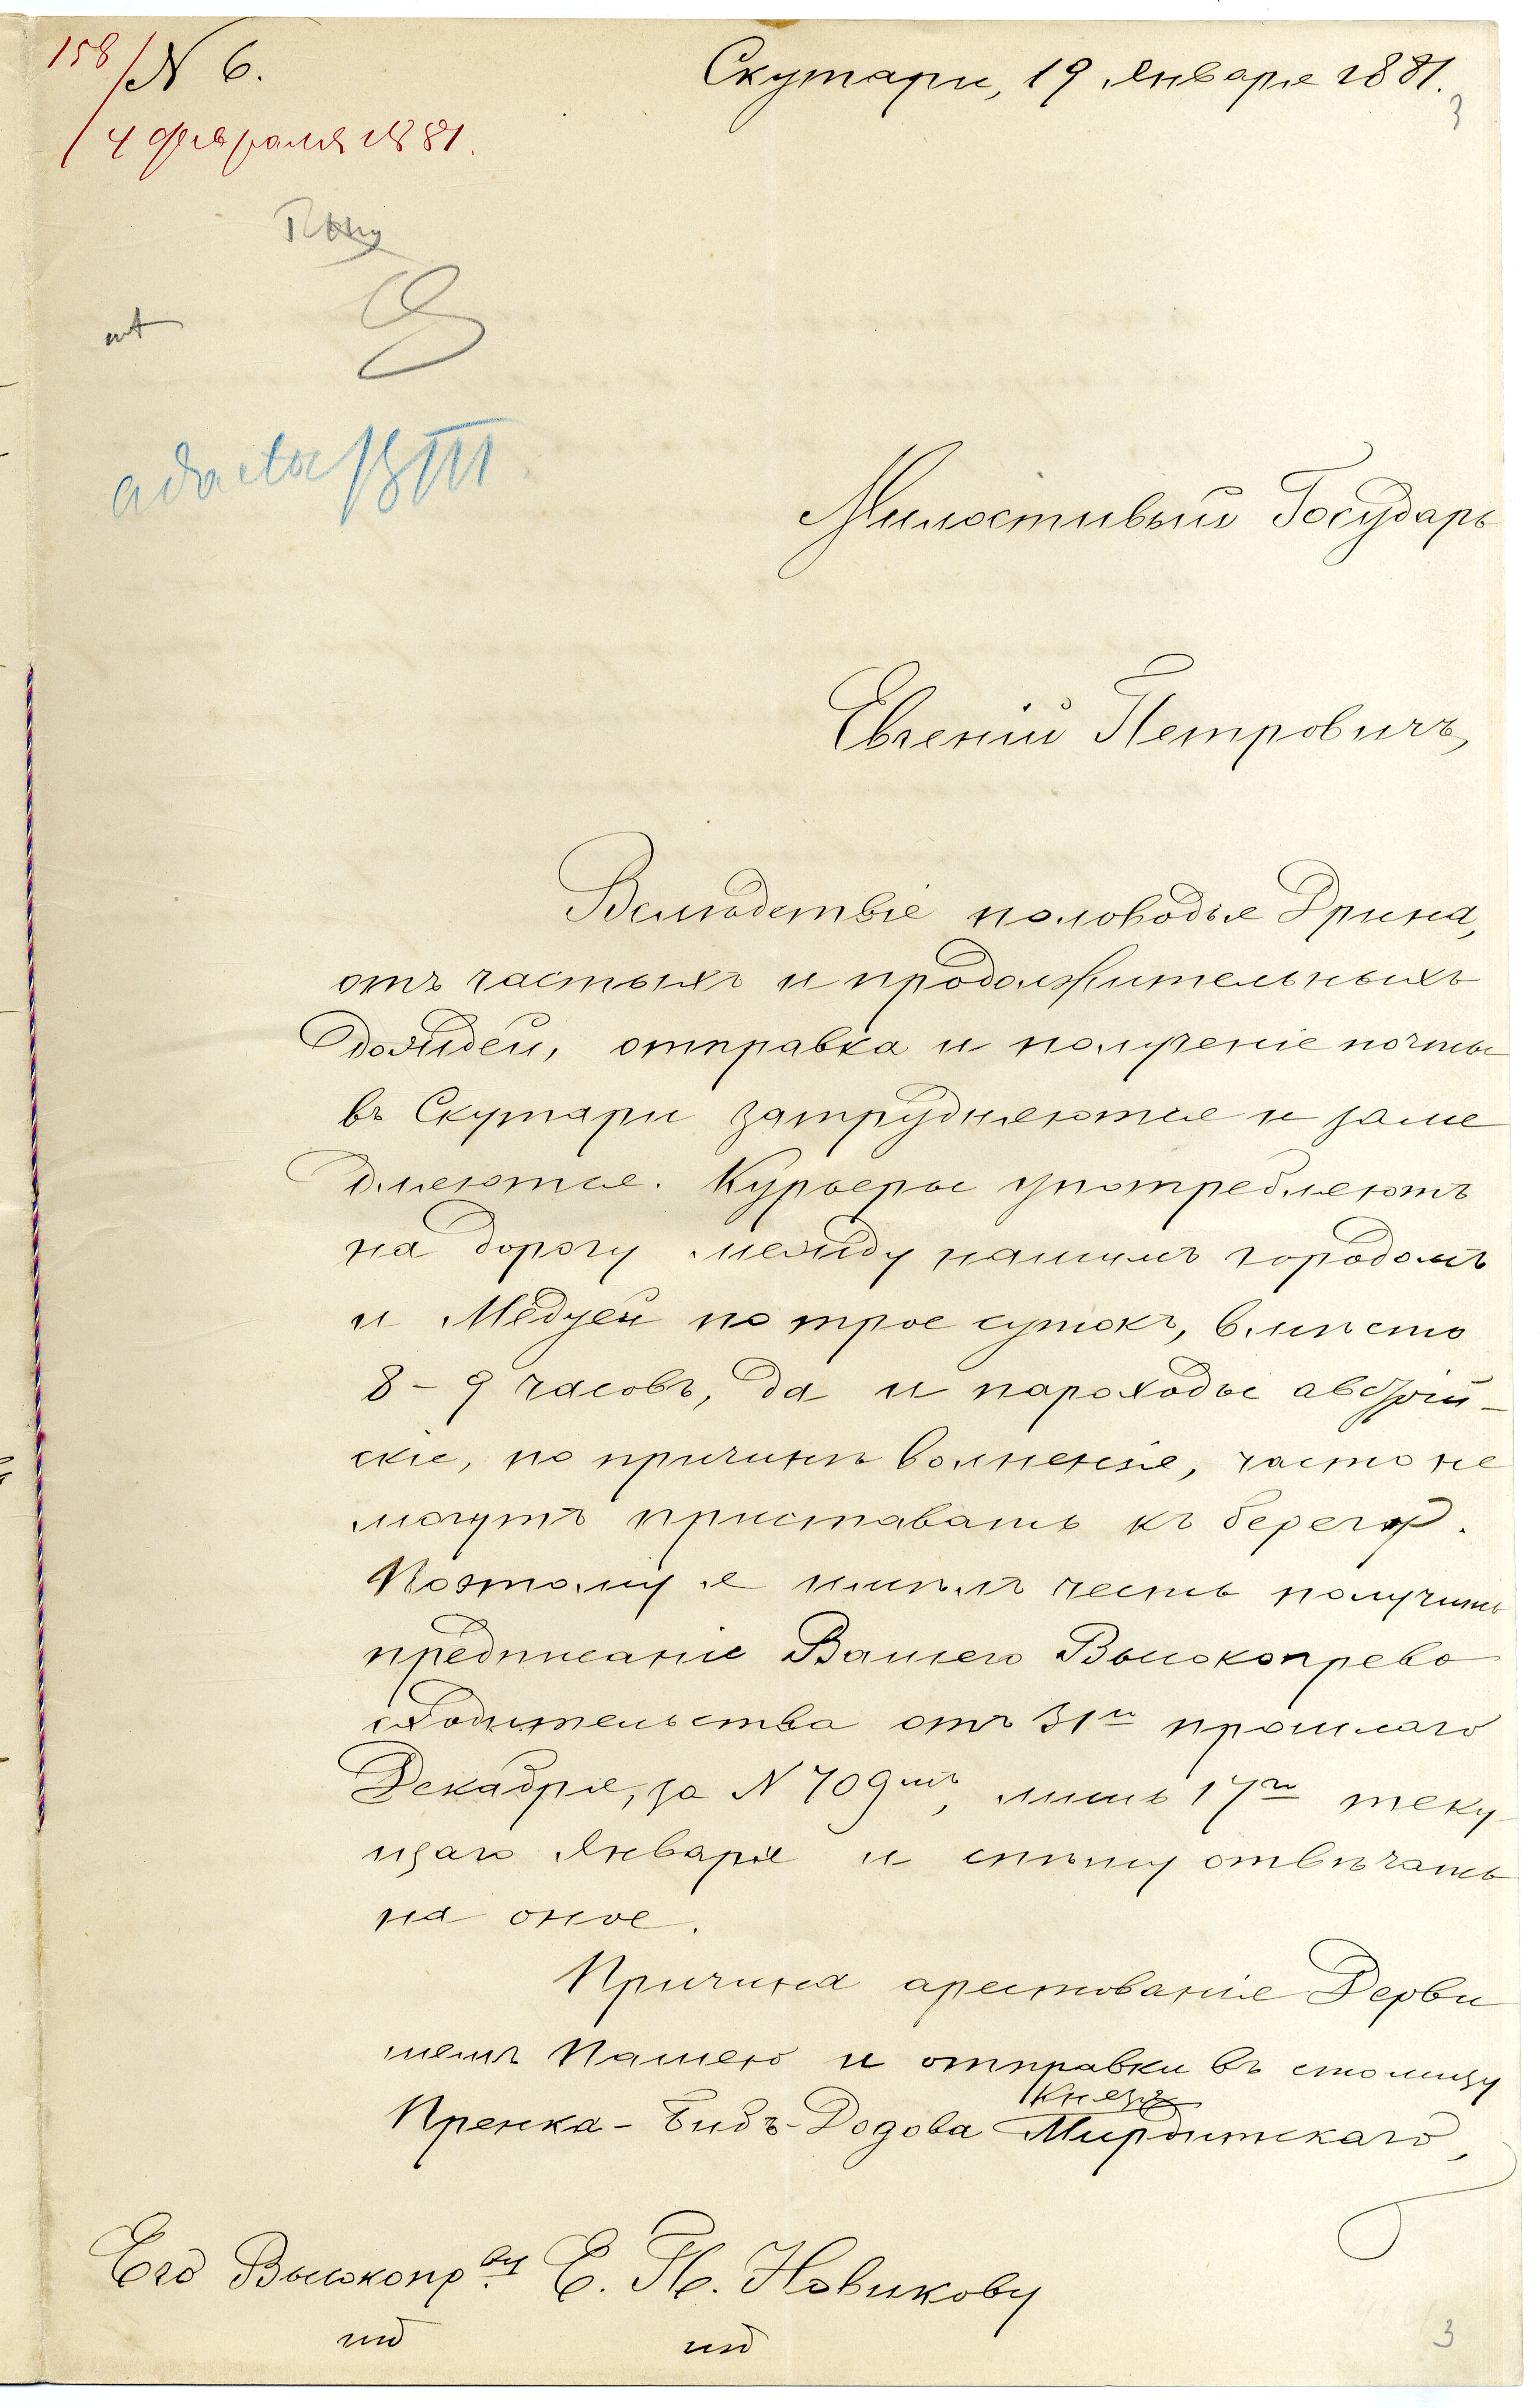 158 / N 6.
Скутари, 19 Января 1881.
3
4 февраля 1881.
ad acta 18/III
Милостивый Государь
Евгеній Петровичъ,
Вслѣдствіе половодья Дрина,
отъ частыхъ и продолжительныхъ
дождей, отправка и полученіе почты
въ Скутари затрудняются и заме
дляются. Курьеры употребляютъ
на дорогу между нашимъ городомъ
и Медуей по трое сутокъ, вмѣсто
8 – 9 часовъ, да и пароходы австрій-
скіе, по причинѣ волненія, часто не
могутъ приставать къ берегу.
Поэтому я имѣлъ честь получить
предписаніе Вашего Высокопрево
сходительства отъ 31го прошлаго
Декабря, за N 709мъ, лишь 17го теку
щаго Января и спѣшу отвѣчать
на оное.
Причина арестованія Дерви
шемъ Пашею и отправки въ столицу
Князя
Пренка-Бибъ-Додова Мирдитскаго,
Его Высокопр.ву Е. П. Новикову
3